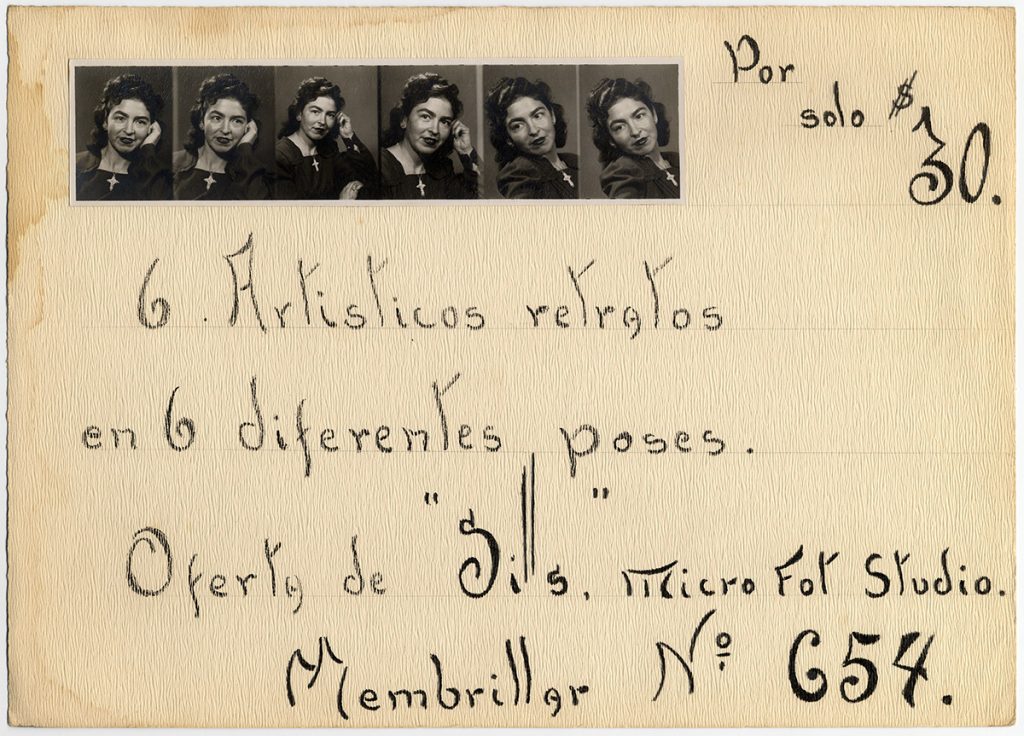 Por
solo $30.
6. Artisticos retratos
en 6 diferentes poses.
Oferta de "Sills, Micro Fot Studio.
Membrillar Nº 654.